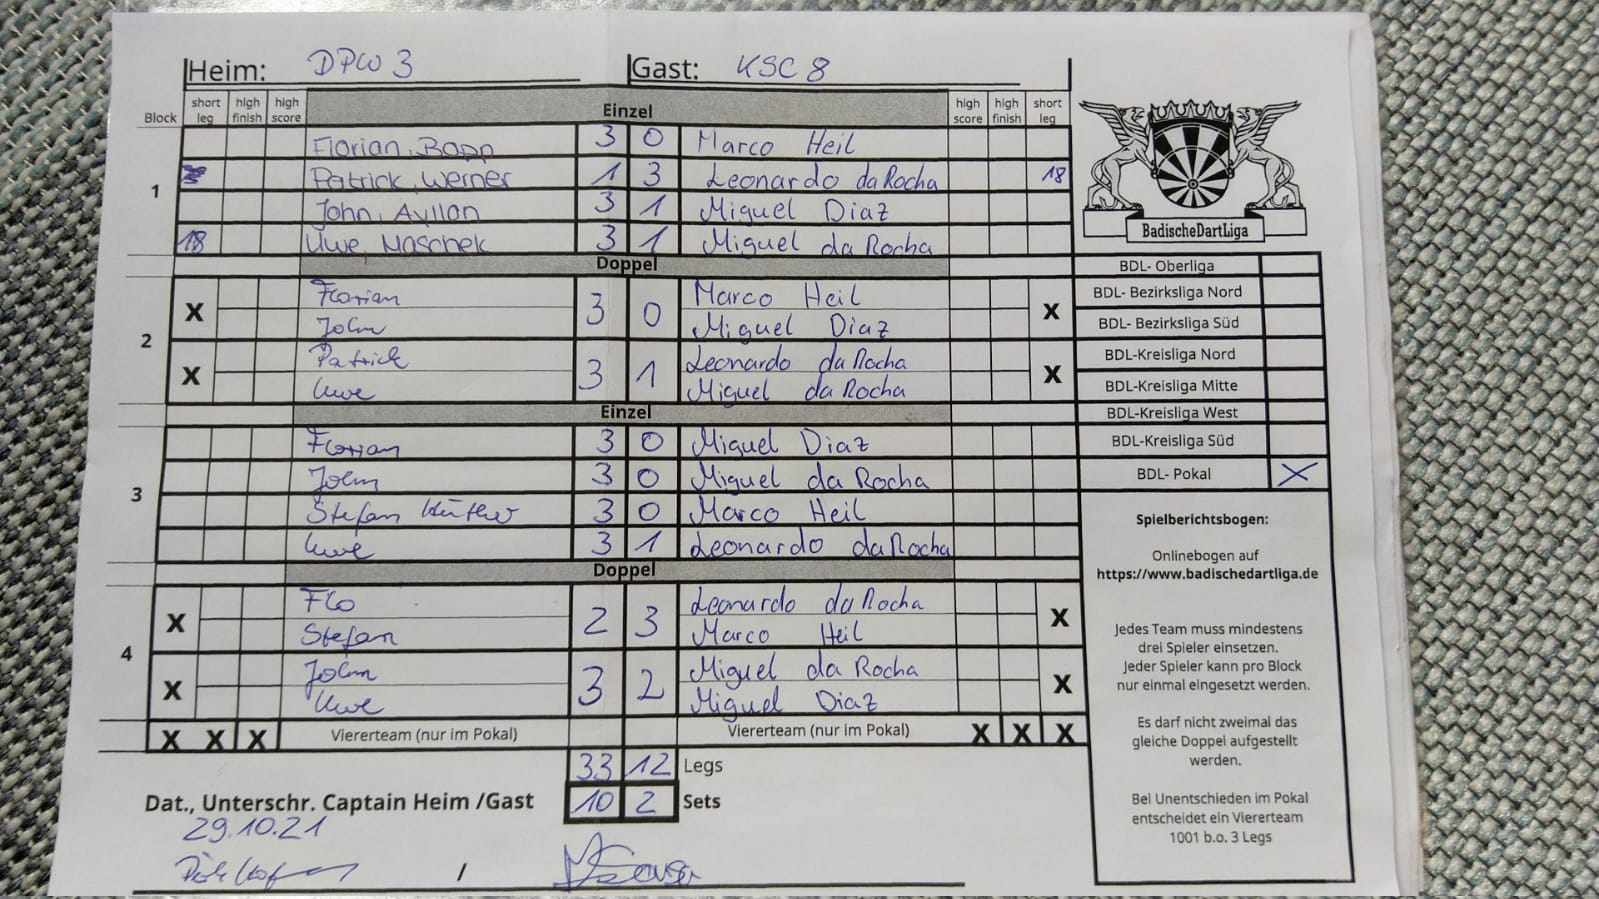 Heim: DPW 3 Gast: KSC 8
Block short leg high finish high score Einzel high score high finish short leg
1
Florian Bopp 3 0 Marco Heil
Patrick Werner 1 3 Leonardo da Rocha 18
John Ayllon 3 1 Miguel Diaz
18 Uwe Maschek 3 1 Miguel da Rocha
Doppel
2
X Florian 3 0 Marco Heil X
John Miguel Diaz
X Patrick 3 1 Leonardo da Rocha X
Uwe Miguel da Rocha
Einzel
3
Florian 3 0 Miguel Diaz
John 3 0 Miguel da Rocha
Stefan 3 0 Marco Heil
Uwe 3 1 Leonardo da Rocha
Doppel
4
X Flo 2 3 Leonardo da Rocha X
Stefan Marco Heil
X John 3 2 Miguel da Rocha X
Uwe Miguel Diaz
X X X Viererteam (nur im Pokal) Viererteam (nur im Pokal) X X X
33 12 Legs
Dat., Unterschr. Captain Heim /Gast 10 2 Sets
29.10.21
/
BadischeDartLiga
BDL- Oberliga
BDL- Bezirksliga Nord
BDL- Bezirksliga Süd
BDL-Kreisliga Nord
BDL-Kreisliga Mitte
BDL-Kreisliga West
BDL-Kreisliga Süd
BDL- Pokal X
Spielberichtsbogen:
Onlinebogen auf
https://www.badischedartliga.de
Jedes Team muss mindestens
drei Spieler einsetzen.
Jeder Spieler kann pro Block
nur einmal eingesetzt werden.
Es darf nicht zweimal das
gleiche Doppel aufgestellt
werden.
Bei Unentschieden im Pokal
entscheidet ein Viererteam
1001 b.o. 3 Legs